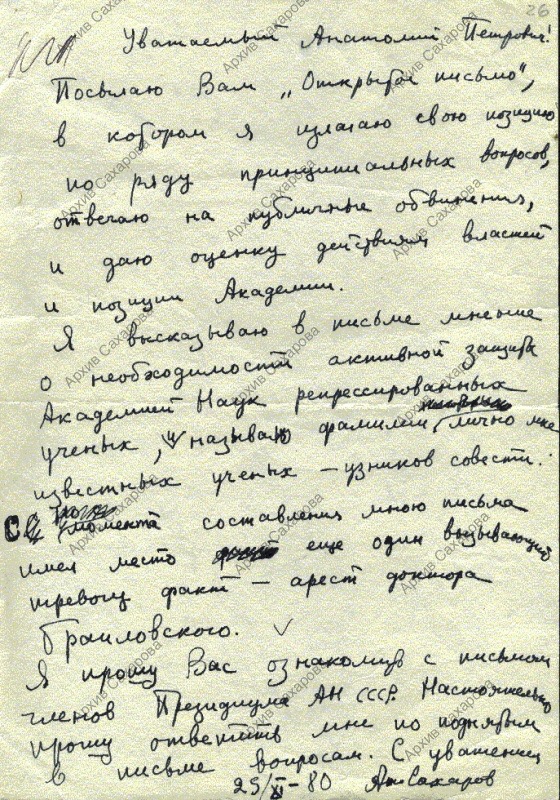 26
Уважаемый Анатолий Петрович!
Посылаю Вам „Открытое письмо",
в котором я излагаю свою позицию
по ряду принципиальных вопросов,
отвечаю на публичные обвинения,
и даю оценку действиям властей
и позиции Академии.
Я высказываю в письме мнение
о необходимости активной защиты
Академией Наук репрессированных
ученых, и называю фамилии лично мне
известных ученых – узников совести.
С момента составления мною письма
имел место еще один вызывающий
тревогу факт – арест доктора
Браиловского.
Я прошу Вас ознакомить с письмом
членов Президиума АН СССР. Настоятельно
прошу ответить мне по поднятым
в письме вопросам. С уважением
25/XI-80 Ан Сахаров
Архив Сахарова